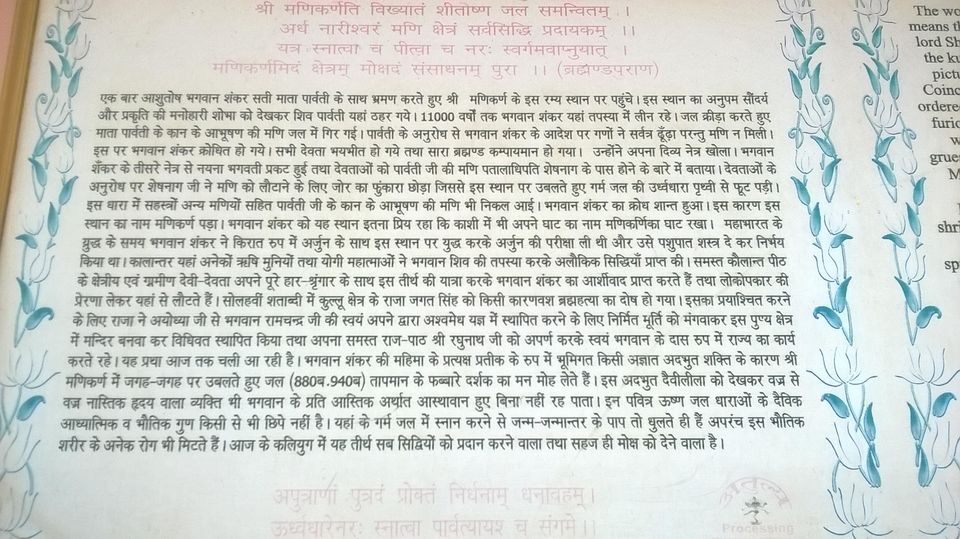 श्री मणिकर्णेति विख्यातं शीतोष्ण जल समन्वितम् ।
अर्ध नारीश्वरं मणि क्षेत्रं सर्वसिद्धि प्रदायकम् ।।
यत्र स्नात्वा च पीत्वा च नरः स्वर्गमवाप्नुयात् ।
मणिकर्णमिदं क्षेत्रम् मोक्षदं संसाधनम् पुरा ।। (ब्रह्मेण्डपुराण)
एक बार आशुतोष भगवान शंकर सती माता पार्वती के साथ भ्रमण करते हुए श्री मणिकर्ण के इस रम्य स्थान पर पहुंचे। इस स्थान का अनुपम सौंदर्य
और प्रकृति की मनोहारी शोभा को देखकर शिव पार्वती यहां ठहर गये। 11000 वर्षों तक भगवान शंकर यहां तपस्या में लीन रहे। जल क्रीड़ा करते हुए
माता पार्वती के कान के आभूषण की मणि जल में गिर गई। पार्वती के अनुरोध से भगवान शंकर के आदेश पर गणों ने सर्वत्र ढूँढ़ा परन्तु मणि न मिली।
इस पर भगवान शंकर क्रोधित हो गये। सभी देवता भयभीत हो गये तथा सारा ब्रह्मण्ड कम्पायमान हो गया। उन्होंने अपना दिव्य नेत्र खोला। भगवान
शँकर के तीसरे नेत्र से नयना भगवती प्रकट हुई तथा देवताओं को पार्वती जी की मणि पतालाधिपति शेषनाग के पास होने के बारे में बताया। देवताओं के
अनुरोध पर शेषनाग जी ने मणि को लौटाने के लिए जोर का फुंकारा छोड़ा जिससे इस स्थान पर उबलते हुए गर्म जल की उर्ध्वधारा पृथ्वी से फूट पड़ी।
इस धारा में सहस्त्रों अन्य मणियों सहित पार्वती जी के कान के आभूषण की मणि भी निकल आई। भगवान शंकर का क्रोध शान्त हुआ। इस कारण इस
स्थान का नाम मणिकर्ण पड़ा। भगवान शंकर को यह स्थान इतना प्रिय रहा कि काशी में भी अपने घाट का नाम मणिकर्णिका घाट रखा। महाभारत के
युद्ध के समय भगवान शंकर ने किरात रुप में अर्जुन के साथ इस स्थान पर युद्ध करके अर्जुन की परीक्षा ली थी और उसे पशुपात शस्त्र दे कर निर्भय
किया था। कालान्तर यहां अनेकों ऋषि मुनियों तथा योगी महात्माओं ने भगवान शिव की तपस्या करके अलौकिक सिद्धियाँ प्राप्त की। समस्त कौलान्त पीठ
के क्षेत्रीय एवं ग्रामीण देवी-देवता अपने पूरे हार-श्रृंगार के साथ इस तीर्थ की यात्रा करके भगवान शंकर का आर्शीवाद प्राप्त करते हैं तथा लोकोपकार की
प्रेरणा लेकर यहां से लौटते हैं। सोलहवीं शताब्दी में कुल्लू क्षेत्र के राजा जगत सिंह को किसी कारणवश ब्रह्महत्या का दोष हो गया। इसका प्रयाश्चित करने
के लिए राजा ने अयोध्या जी से भगवान रामचन्द्र जी की स्वयं अपने द्वारा अश्वमेध यज्ञ में स्थापित करने के लिए निर्मित मूर्ति को मंगवाकर इस पुण्य क्षेत्र
में मन्दिर बनवा कर विधिवत स्थापित किया तथा अपना समस्त राज-पाठ श्री रघुनाथ जी को अपर्ण करके स्वयं भगवान के दास रुप में राज्य का कार्य
करते रहे। यह प्रथा आज तक चली आ रही है। भगवान शंकर की महिमा के प्रत्यक्ष प्रतीक के रुप में भूमिगत किसी अज्ञात अदभुत शक्ति के कारण श्री
मणिकर्ण में जगह-जगह पर उबलते हुए जल (880ब.940ब) तापमान के फब्बारे दर्शक का मन मोह लेते हैं। इस अदभुत दैवीलीला को देखकर वज्र से
वज्र नास्तिक हृदय वाला व्यक्ति भी भगवान के प्रति आस्तिक अर्थात आस्थावान हुए बिना नहीं रह पाता। इन पवित्र ऊष्ण जल धाराओं के दैविक
आध्यात्मिक व भौतिक गुण किसी से भी छिपे नहीं है। यहां के गर्म जल में स्नान करने से जन्म-जन्मान्तर के पाप तो धुलते ही हैं अपरंच इस भौतिक
शरीर के अनेक रोग भी मिटते हैं। आज के कलियुग में यह तीर्थ सब सिद्वियों को प्रदान करने वाला तथा सहज ही मोक्ष को देने वाला है।
अपुत्राणां पुत्रदं प्रोक्तं निर्धनाम् धनावहम्।
ऊर्ध्वधारेनरः स्नात्वा पार्वत्यायश च संगमे।।
अतुल्य
Processing
The wo
means th
lord Sh
the ku
pictu
Coinc
ordere
furio
w
grues
M
shri
sp